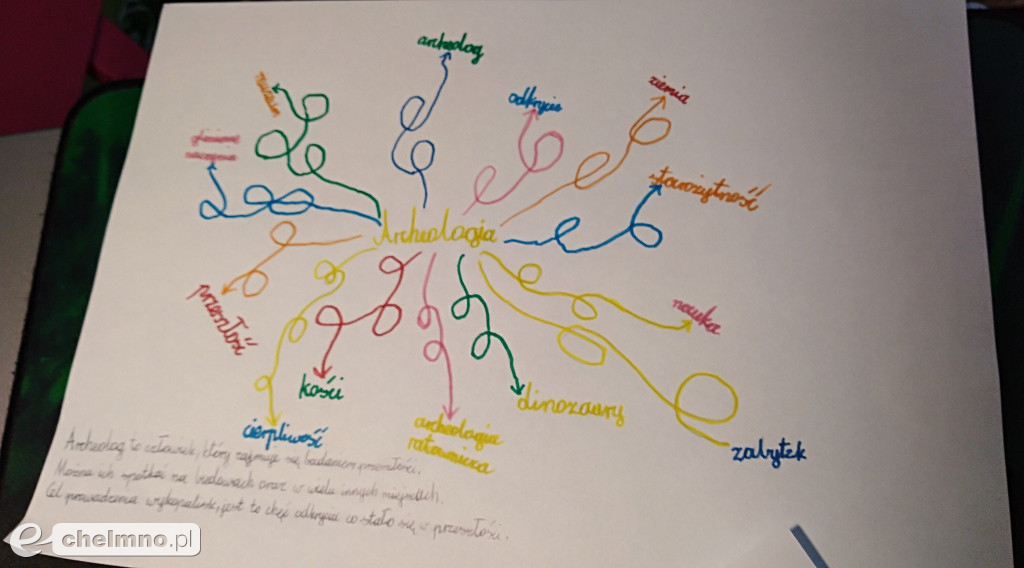 archeolog
odkrycie
ziemia
starożytność
Archeologia
przeszłość
nauka
kości
dinozaury
cierpliwość
archeologia
ratownicza
zabytek
Archeolog to człowiek, który zajmuje się badaniem przeszłości.
Można ich spotkać na budowach oraz w wielu innych miejscach.
Cel prowadzenia wykopalisk, jest to chęć odkrycia co stało się w przeszłości.
e-chelmno.pl